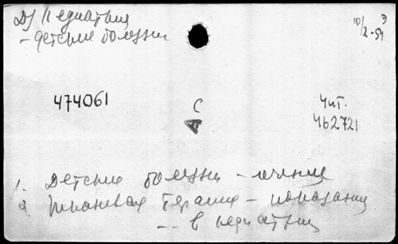 Д/ Педиатрия
- детские болезни
10/2-54
3
474061
С
Чит.
462721
1. Детские болезни - лечение
2. Тканевая терапия - показания
-- в педиатрии